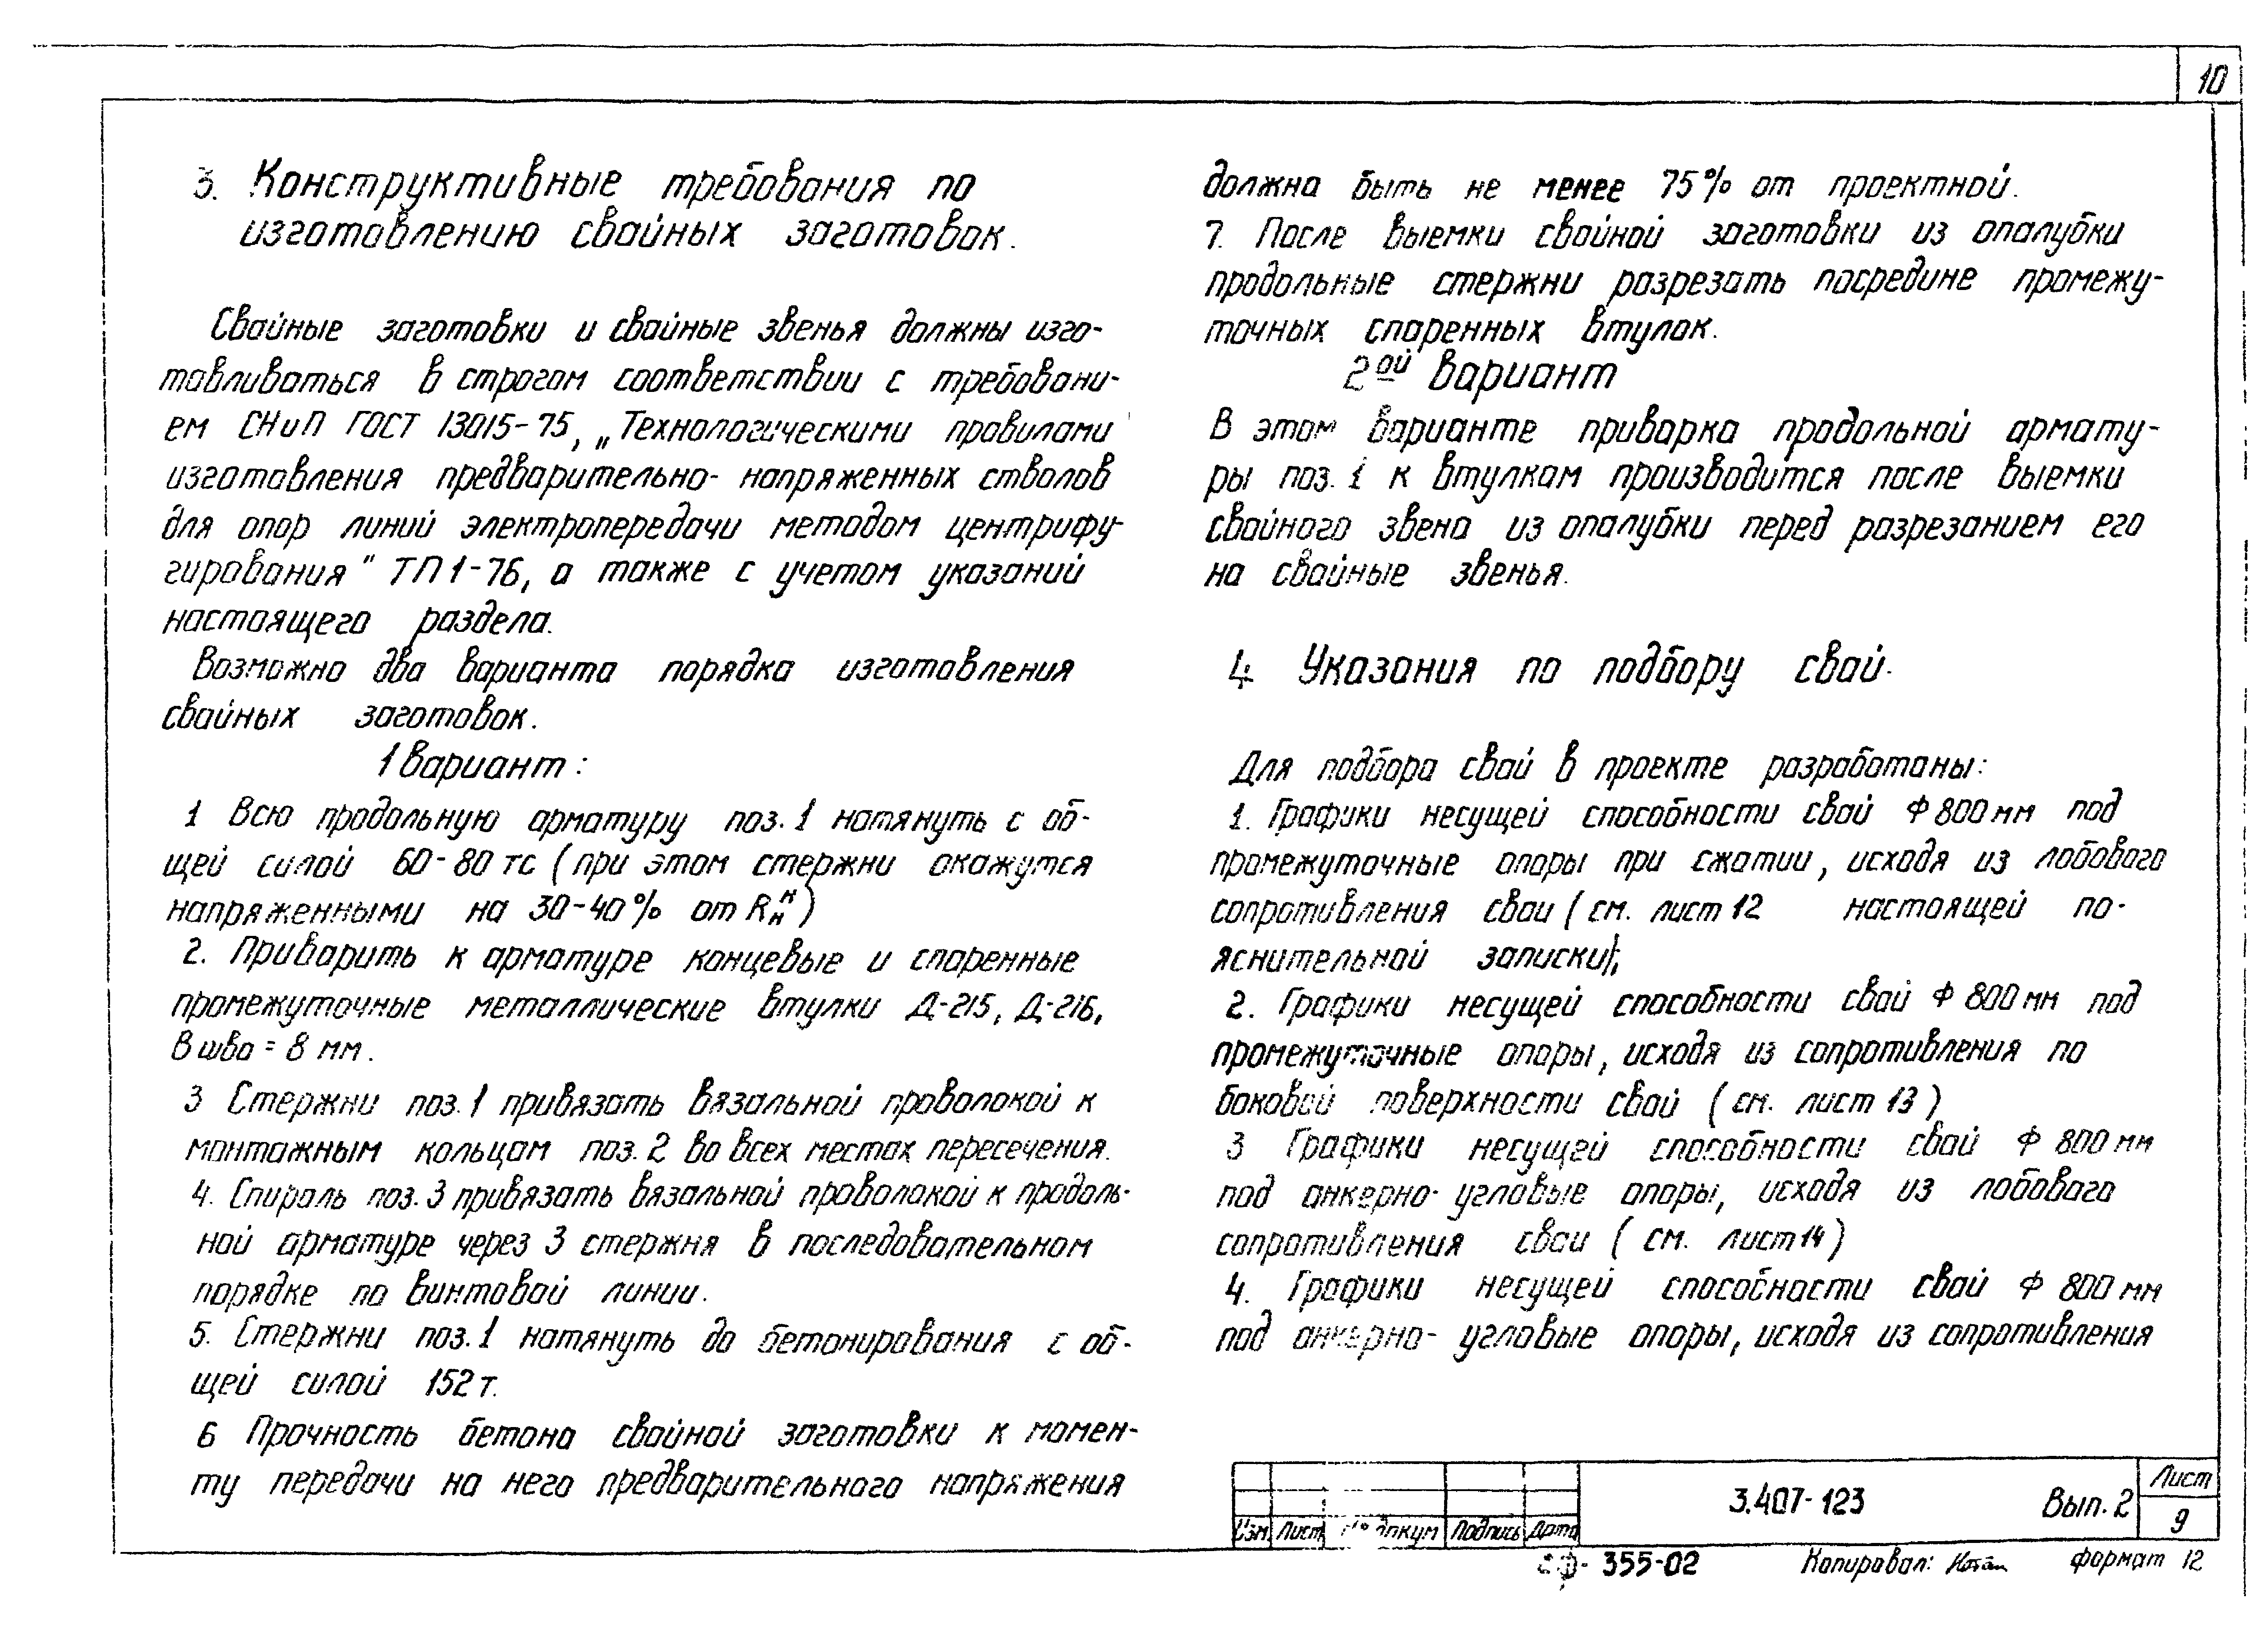 10
3. Конструктивные требования по
изготовлению свайных заготовок.
Свайные заготовки и свайные звенья должны изго-
тавливаться в строгом соответствии с требовани-
ем СНиП ГОСТ 13015-75, „Технологическими правилами
изготовления предварительно-напряженных стволов
для опор линий электропередачи методом центрифу-
гирования" ТП 1-76, а также с учетом указаний
настоящего раздела.
Возможно два варианта порядка изготовления
свайных заготовок.
1 вариант:
1 Всю продольную арматуру поз. 1 натянуть с об-
щей силой 60-80 тс (при этом стержни окажутся
напряженными на 30-40% от Rнн)
2. Приварить к арматуре концевые и спаренные
промежуточные металлические втулки Д-215, Д-216,
В шва = 8 мм.
3 Стержни поз. 1 привязать вязальной проволокой к
монтажным кольцам поз. 2 во всех местах пересечения.
4. Спираль поз. 3 привязать вязальной проволокой к продоль-
ной арматуре через 3 стержня в последовательном
порядке по винтовой линии.
5. Стержни поз. 1 натянуть до бетонирования с об-
щей силой 152 т.
6 Прочность бетона свайной заготовки к момен-
ту передачи на него предварительного напряжения
должна быть не менее 75% от проектной.
7. После выемки свайной заготовки из опалубки
продольные стержни разрезать посредине промежу-
точных спаренных втулок.
2ой вариант
В этом варианте приварка продольной армату-
ры поз. 1 к втулкам производится после выемки
свайного звена из опалубки перед разрезанием его
на свайные звенья.
4. Указания по подбору свай.
Для подбора свай в проекте разработаны:
1. Графики несущей способности свай Ф 800 мм под
промежуточные опоры при сжатии, исходя из лобового
сопротивления сваи (см. лист 12 настоящей по-
яснительной записки);
2. Графики несущей способности свай Ф 800 мм под
промежуточные опоры, исходя из сопротивления по
боковой поверхности свай (см. лист 13)
3 Графики несущей способности свай Ф 800 мм
под анкерно-угловые опоры, исходя из лобового
сопротивления сваи (см. лист 14)
4. Графики несущей способности свай Ф 800 мм
под анкерно-угловые опоры, исходя из сопротивления
3.407-123 Вып. 2 Лист 9
Изм Лист № докум Подпись Дата
355-02 Копировал: формат 12